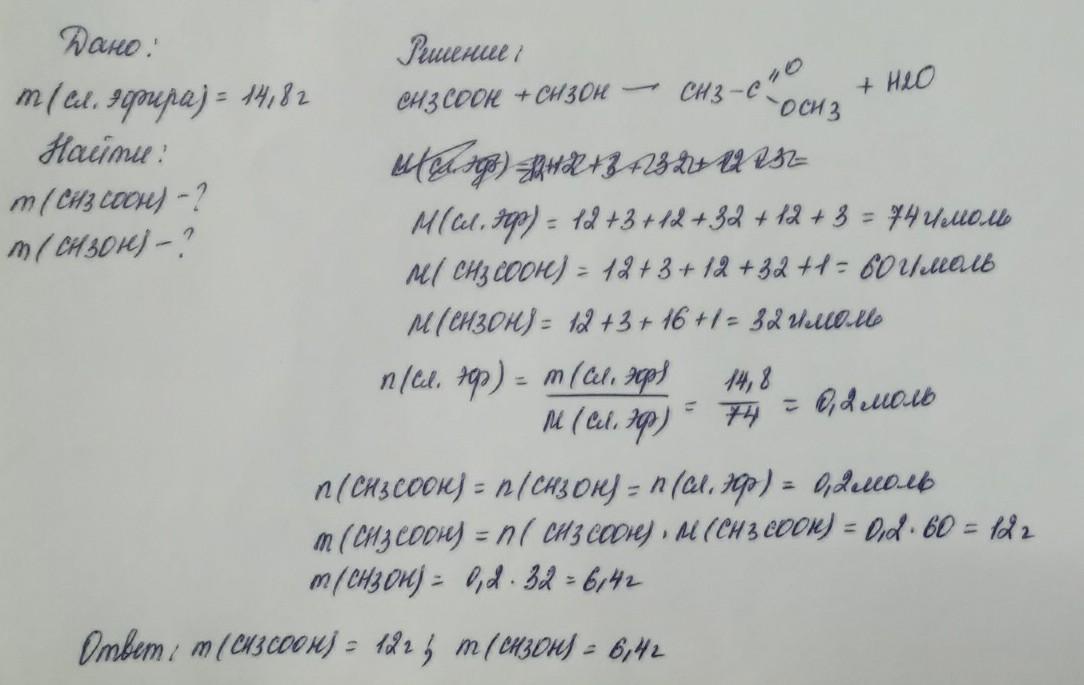 Дано:
m(сл. эфира) = 14,8г
Найти:
m(CH3COOH) - ?
m(CH3OH) - ?
Решение:
CH3COOH + CH3OH — CH3-C =O -OCH3 + H2O
M(сл. эф) = 12+3+12+32+12+3 = 74г/моль
M(CH3COOH) = 12+3+12+32+1= 60г/моль
M(CH3OH) = 12+3+16+1= 32г/моль
n(сл. эф) = m(сл. эф) / M(сл. эф) = 14,8 / 74 = 0,2моль
n(CH3COOH) = n(CH3OH) = n(сл. эф) = 0,2моль
m(CH3COOH) = n(CH3COOH) · M(CH3COOH) = 0,2 · 60 = 12г
m(CH3OH) = 0,2 · 32 = 6,4г
Ответ: m(CH3COOH) = 12г; m(CH3OH) = 6,4г